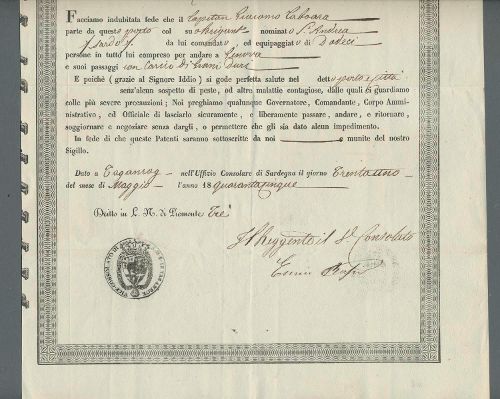 Facciamo indubitata fede che il Capitan Giacomo Caboara
parta da questo porto col suo Brigant nominato S. Andrea
Sardo da lui comandato, ed equipaggiato di Dodeci
persone in tutto lui compreso per andare a Genova
e suoi passaggi con Carico di Grani Duri
E poichè (grazie al Signore Iddio) si gode perfetta salute nel detto porto e città
senz'alcun sospetto di peste, od altre malattie contagiose, dalle quali ci guardiamo
colle più severe precauzioni; Noi preghiamo qualunque Governatore, Comandante, Corpo Ammi-
nistrativo, ed Officiale di lasciarlo sicuramente, e liberamente passare, andare, e ritornare,
soggiornare e negoziare senza dargli, o permettere che gli sia dato alcun impedimento.
In fede di che queste Patenti saranno sottoscritte da noi e munite del nostro
Sigillo.
Dato a Taganrog nell'Uffizio Consolare di Sardegna il giorno Trentauno
del mese di Maggio l'anno 18 Quarantacinque
Diritto in L. N. di Piemonte Tre
Il Reggente il V. Consolato